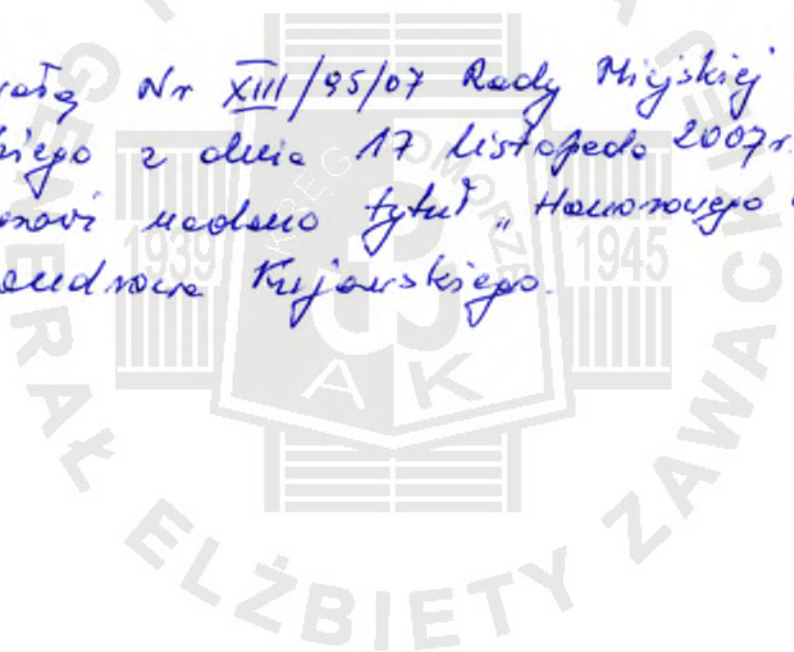 ałą Nr XIII/95/07 Rady Miejskiej
kiego z dnia 17 listopada 2007r.
nowi nadano tytuł „Honorowego
androwa Kujawskiego.
1939 1945
KRĘG POMORZE
AK
GENERAŁ ELŻBIETY ZAWACKIEJ